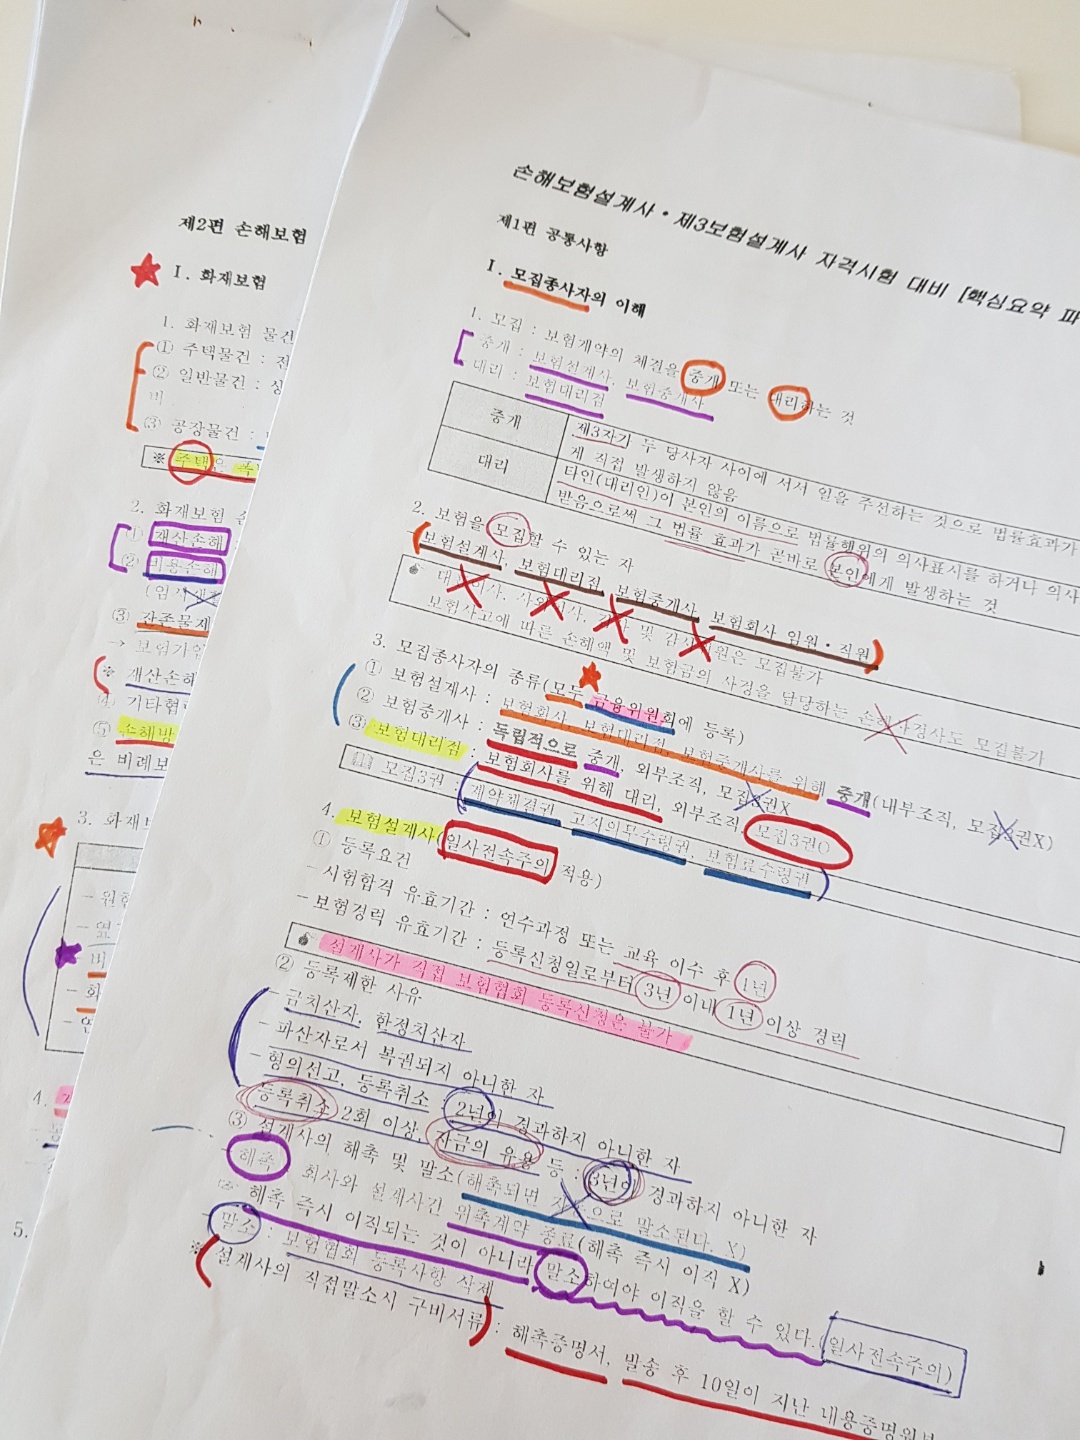 손해보험설계사・제3보험설계사 자격시험 대비 [핵심요약 파
제1편 공통사항
I. 모집종사자의 이해
1. 모집 : 보험계약의 체결을 중개 또는 대리하는 것
중개 : 보험설계사, 보험중개사
대리 : 보험대리점
중개
제3자가 두 당사자 사이에 서서 일을 주선하는 것으로 법률효과가
게 직접 발생하지 않음
대리
타인(대리인)이 본인의 이름으로 법률행위의 의사표시를 하거나 의사
받음으로써 그 법률 효과가 곧바로 본인에게 발생하는 것
2. 보험을 모집할 수 있는 자
보험설계사, 보험대리점, 보험중개사, 보험회사 임원・직원
대표이사, 사외이사, 감사 및 감사위원은 모집불가
보험사고에 따른 손해액 및 보험금의 사정을 담당하는 손해사정사도 모집불가
3. 모집종사자의 종류(모두 금융위원회에 등록)
① 보험설계사 : 보험회사, 보험대리점, 보험중개사를 위해 중개(내부조직, 모집3권X)
② 보험중개사 : 독립적으로 중개, 외부조직, 모집3권X
③ 보험대리점 : 보험회사를 위해 대리, 외부조직, 모집3권O
모집3권 : 계약체결권, 고지의무수령권, 보험료수령권
4. 보험설계사(일사전속주의 적용)
① 등록요건
- 시험합격 유효기간 : 연수과정 또는 교육 이수 후 1년
- 보험경력 유효기간 : 등록신청일로부터 3년 이내 1년 이상 경력
설계사가 직접 보험협회 등록신청은 불가
② 등록제한 사유
- 금치산자, 한정치산자
- 파산자로서 복권되지 아니한 자
- 형의선고, 등록취소 2년이 경과하지 아니한 자
등록취소 2회 이상, 자금의 유용 등 : 3년이 경과하지 아니한 자
③ 설계사의 해촉 및 말소(해촉되면 자동으로 말소된다. X)
- 해촉 : 회사와 설계사간 위촉계약 종료(해촉 즉시 이직 X)
해촉 즉시 이직되는 것이 아니라 말소하여야 이직을 할 수 있다.(일사전속주의)
- 말소 : 보험협회 등록사항 삭제
※ 설계사의 직접말소시 구비서류 : 해촉증명서, 발송 후 10일이 지난 내용증명원본
제2편 손해보험
I. 화재보험
1. 화재보험 물건
① 주택물건 :
② 일반물건 :
③ 공장물건 :
※ 주택은
2. 화재보험
① 재산손해
② 비용손해
③ 잔존물제
→ 보험가
※ 재산손해
④ 기타협
⑤ 손해방
은 비례보
3. 화재
4.
5.